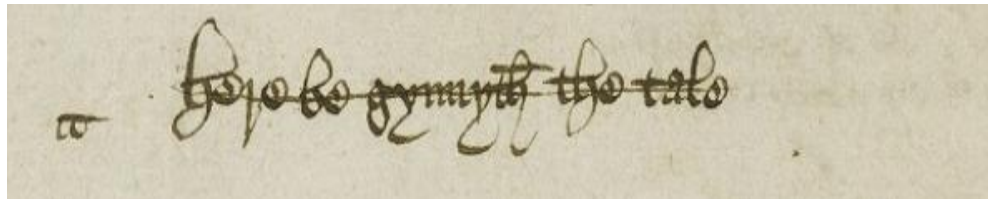 here be gynnyth the tale